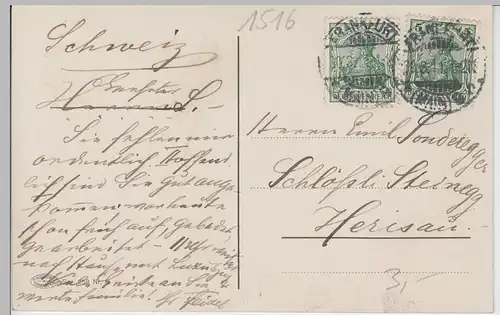 1516
Schweiz
Geehrter
Herr S.
Sie fehlen mir
ordentlich Hoffent
lich sind Sie gut ange
kommen war heute
schon früh auf, Gebadet
Gearbeitet
nach Haus, mit
an Sie
werte Familie!
FRANKFURT
Herrn Emil Sonderegger
Schlößli Steinegg
Herisau
3,-